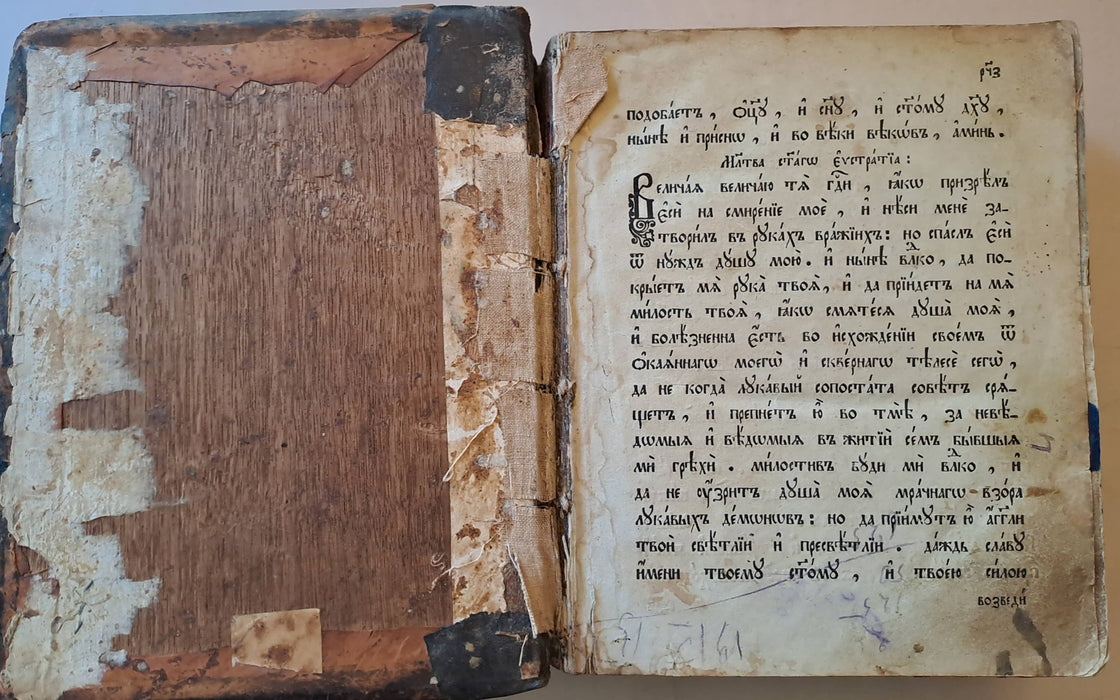 рч҃з
подоба́етъ , ѻ҆ц҃ꙋ , и҆ сн҃ꙋ , и҆ ст҃о́мꙋ дх҃ꙋ ,
ны́нѣ и҆ при́снѡ , и҆ во вѣ́ки вѣкѡ́въ , а҆ми́нь .
Мл҃тва ст҃а́гѡ є҆ѵстра́тїа :
Велича́ѧ велича́ю тѧ̀ гдⷭ҇и , ꙗ҆́кѡ призрѣ́лъ
є҆сѝ на смире́нїе моѐ , и҆ нѣ́си менѐ за-
твори́лъ въ рꙋка́хъ вра́жїихъ : но спа́слъ є҆сѝ
ѿ нꙋ́ждъ дꙋ́шꙋ мою̀ . и҆ ны́нѣ влⷣко , да по-
кры́етъ мѧ̀ рꙋка̀ твоѧ̀ , и҆ да прїи́детъ на мѧ̀
ми́лость твоѧ̀ , ꙗ҆́кѡ смѧте́сѧ дꙋша̀ моѧ̀ ,
и҆ болѣ́зненна є҆́сть во и҆схожде́нїи свое́мъ ѿ
ѻ҆каѧ́ннагѡ моегѡ̀ и҆ скве́рнагѡ тѣлесѐ сегѡ̀ ,
да не когда̀ лꙋка́вый сопоста́та совѣ́тъ срѧ́-
щетъ , и҆ препне́тъ ю҆̀ во тмѣ̀ , за невѣ́-
дѡмыѧ и҆ вѣ́дѡмыѧ въ житїѝ се́мъ бы́вшыѧ
мѝ грѣхѝ . ми́лостивъ бꙋ́ди мѝ влⷣко , и҆
да не ᲂу҆́зритъ дꙋша̀ моѧ̀ мра́чнагѡ взо́ра
лꙋка́выхъ де́мѡнѡвъ : но да прїи́мꙋтъ ю҆̀ а҆́гг҃ли
твоѝ свѣ́тлїи и҆ пресвѣ́тлїи . да́ждь сла́вꙋ
и҆́мени твоемꙋ̀ ст҃о́мꙋ , и҆ твое́ю си́лою
возведѝ